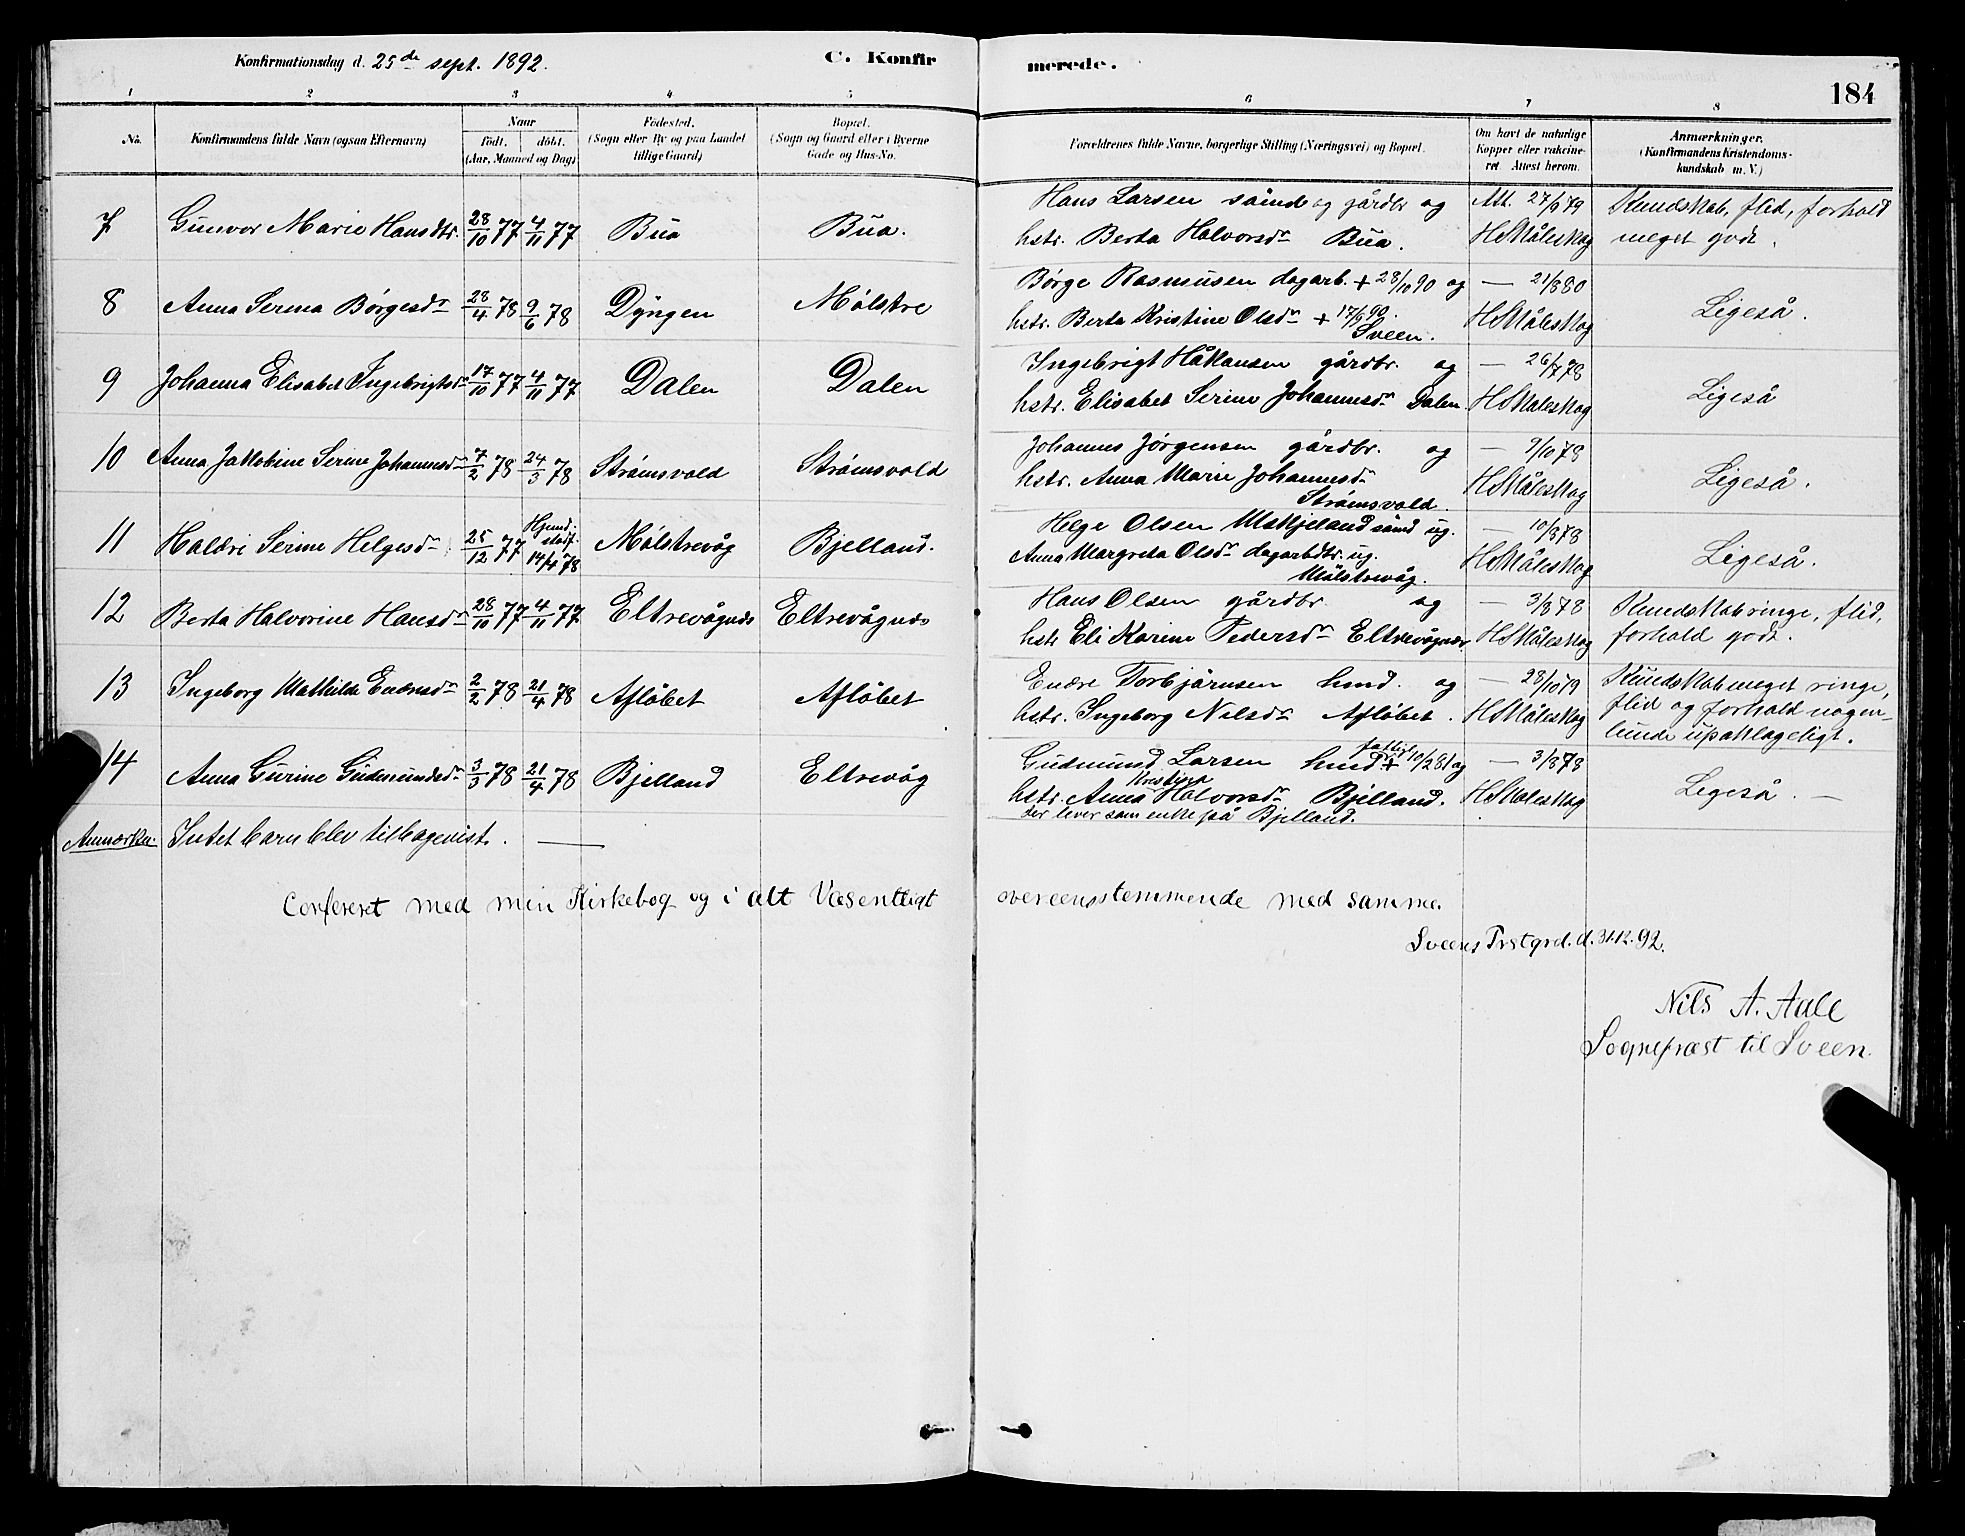 Konfirmationsdag d. 25de sept. 1892. C. Konfirmerede. 184
1 2 3 4 5 6 7 8
No. Konfirmandens fulde Navn (ogsaa Efternavn) Naar født. døbt. (Aar, Maaned og Dag) Fødested. (Sogn eller By og paa Landet tillige Gaard) Bopæl. (Sogn og Gaard eller i Byerne Gade og Hus-No. Forældrenes fulde Navne, borgerlige Stilling (Næringsvei) og Bopæl. Om havt de naturlige Kopper eller vakcineret Attest herom. Anmærkninger. (Konfirmandens Kristendomskundskab m. V.)
7 Gunvor Marie Hansdtr. 28/10 77 4/11 77 Bua Bua. Hans Larsen sømd og gårdbr og Att. 27/9 79 Kundskab, flid, forhold
hstr. Berta Halvorsdr Bua. H Måleskog meget godt.
8 Anna Serina Børgesdr 28/4 78 9/6 78 Dyngen Mølstre Børge Rasmusen dagarb. + 28/10 90 og — 21/8 80 Ligeså.
hstr. Berta Kristine Olsdr + 17/6 90. Sveen. H Måleskog
9 Johanna Elisabet Ingebrigtsdr 17/10 77 4/11 77 Dalen Dalen Ingebrigt Håkansen gårdbr. og — 26/7 78 Ligeså
hstr. Elisabet Serine Johannesdr Dalen H Måleskog
10 Anna Jakobine Serine Johannesdr 7/2 78 24/3 78 Strømsvold Strømsvold Johannes Jørgensen gårdbr. og — 9/10 78 Ligeså.
hstr. Anna Marie Johannesdr H Måleskog
Strømsvold.
11 Haldri Serine Helgesdr 25/12 77 Hjemd. stadf. 14/4 78 Mølstrevåg Bjelland. Helge Olsen Utskjeland sømd ug. — 10/8 78 Ligeså.
Anna Margreta Olsdr dagarbdtr. ug. H Måleskog
Mølstrevåg.
12 Berta Halvorine Hansdr 28/10 77 4/11 77 Eltrevågnæs Eltrevågnæs Hans Olsen gårdbr. og — 3/8 78 Kundskab ringe, flid,
hstr Eli Karine Pedersdr Eltrevågnæs H Måleskog forhold godt.
13 Ingeborg Mathilde Endresdr 2/2 78 21/4 78 Afløbet Afløbet Endre Torbjørnsen hmd. og — 28/10 79 Kundskab meget ringe,
hstr. Ingeborg Nilsdr Afløbet. H Måleskog flid og forhold nogen-
lunde upåklageligt.
14 Anna Gurine Gudmundsdr 3/3 78 21/4 78 Bjelland Eltrevåg Gudmund Larsen hmd + 10/2 81 og — 3/8 78 Ligeså. —
hstr. Anna Kristina Halvorsdr Bjelland. H Måleskog
der lever som enke på Bjelland.
Anmærkn. Intet barn blev tilbagevist. —
Confereret med min Kirkebog og i alt Væsentligt overeensstemmende med samme.
Sveens Prstgrd. d. 31.12.92.
Nils A. Aale
Sognepræst til Sveen.